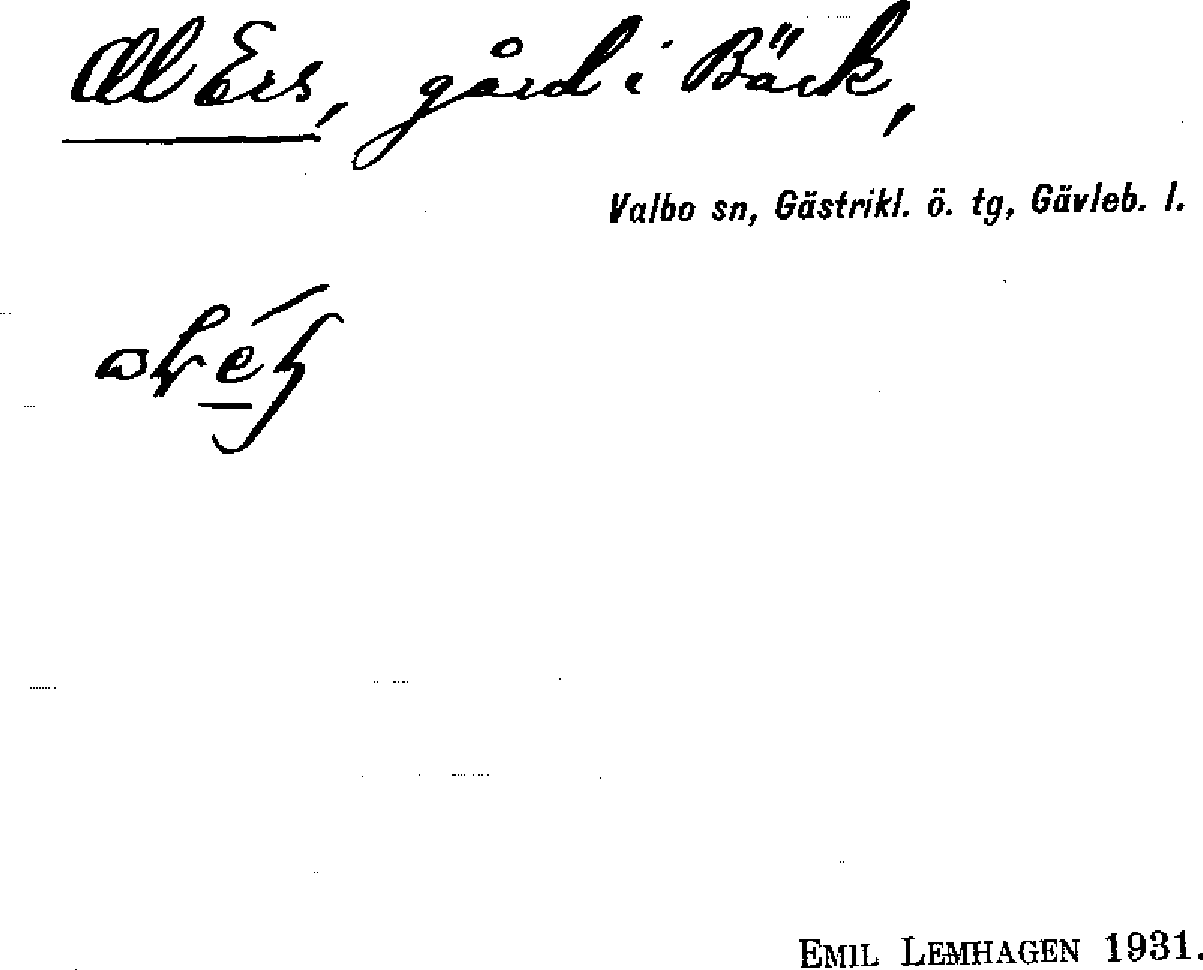 Ol Ers, gård i Bäck,
Valbo sn, Gästrikl. ö. tg, Gävleb. l.
EMIL LEMHAGEN 1931.